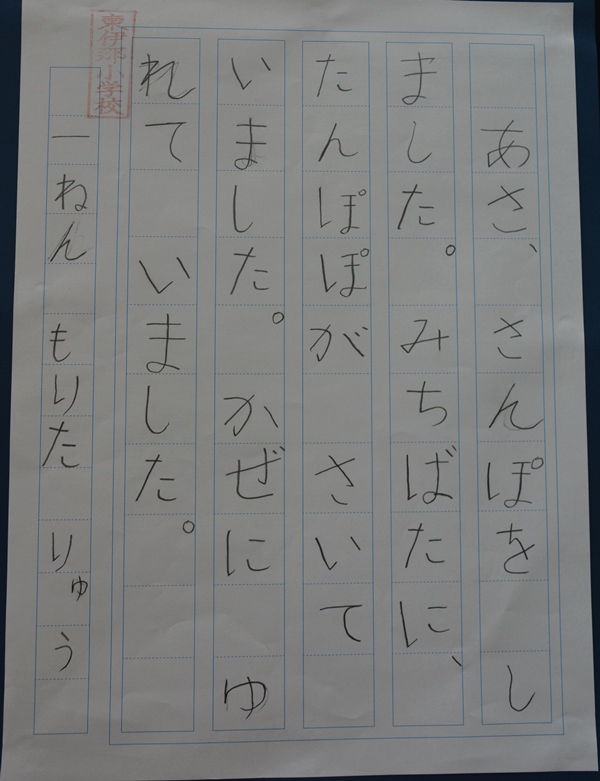 あさ、さんぽを し
ました。 みちばたに、
たんぽぽが さいて
いました。 かぜに ゆ
れて いました。
一ねん もりた りゅう
東伊那小学校